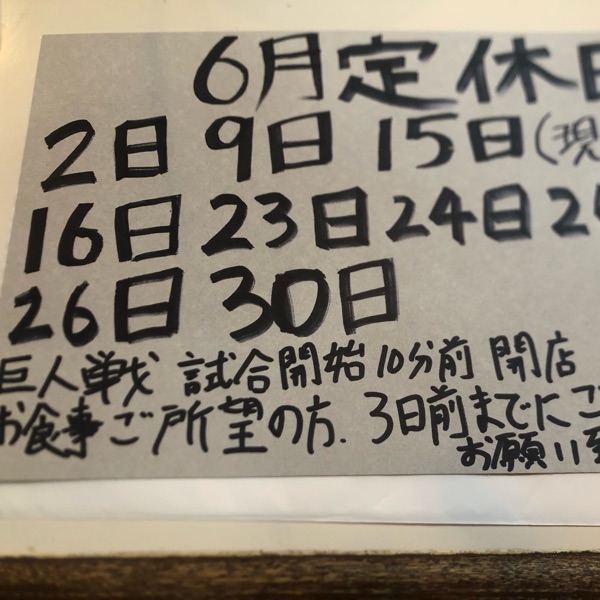 6月定休日
2日 9日 15日(現
16日 23日 24日 2
26日 30日
巨人戦 試合開始10分前 開店
お食事ご所望の方. 3日前までにご
お願い致